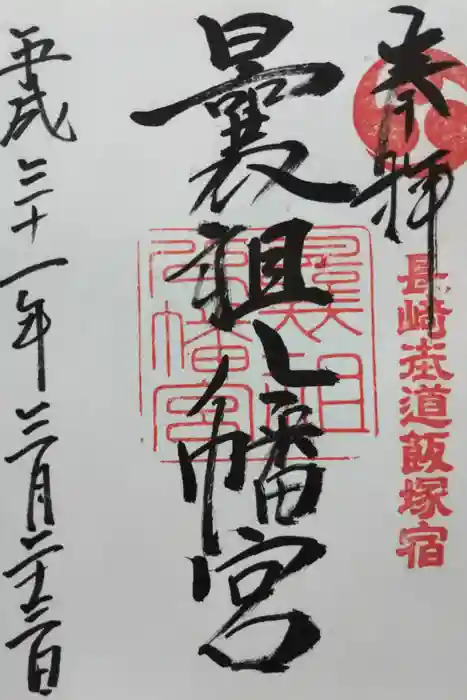 奉拝
長崎街道飯塚宿
曩祖八幡宮
平成三十一年三月二十三日